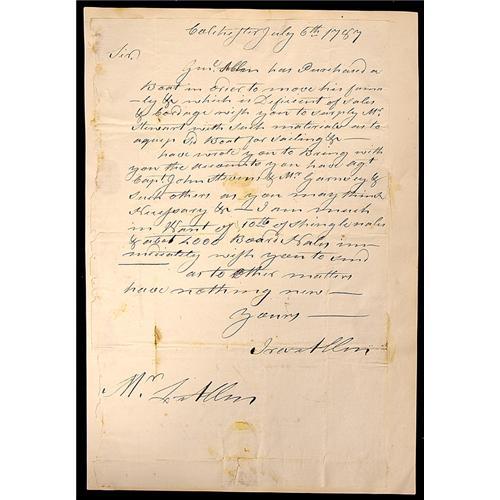 Colchester July 6th 1787
Sir,
Genl. Allen has Purchased a
Boat in order to move his fame
-ly &c which is Deficent of Sales
& Cordage wish you to Surply Mr.
Stewart with Such materials as to
aquip Sd Boat for Sailing &c—
have wrote you to Bring with
you the accounts you have agt
Capt. John Stevens & Mr. &
Such others as you may think
Nessesary &c— I am much
in Want of 10th of Shingle nales
& abt 2000 Board Nales im-
mediately wish you to Send
as to other matters
have nothing new—
Yours—
Ira Allen
Mr. L. Allen